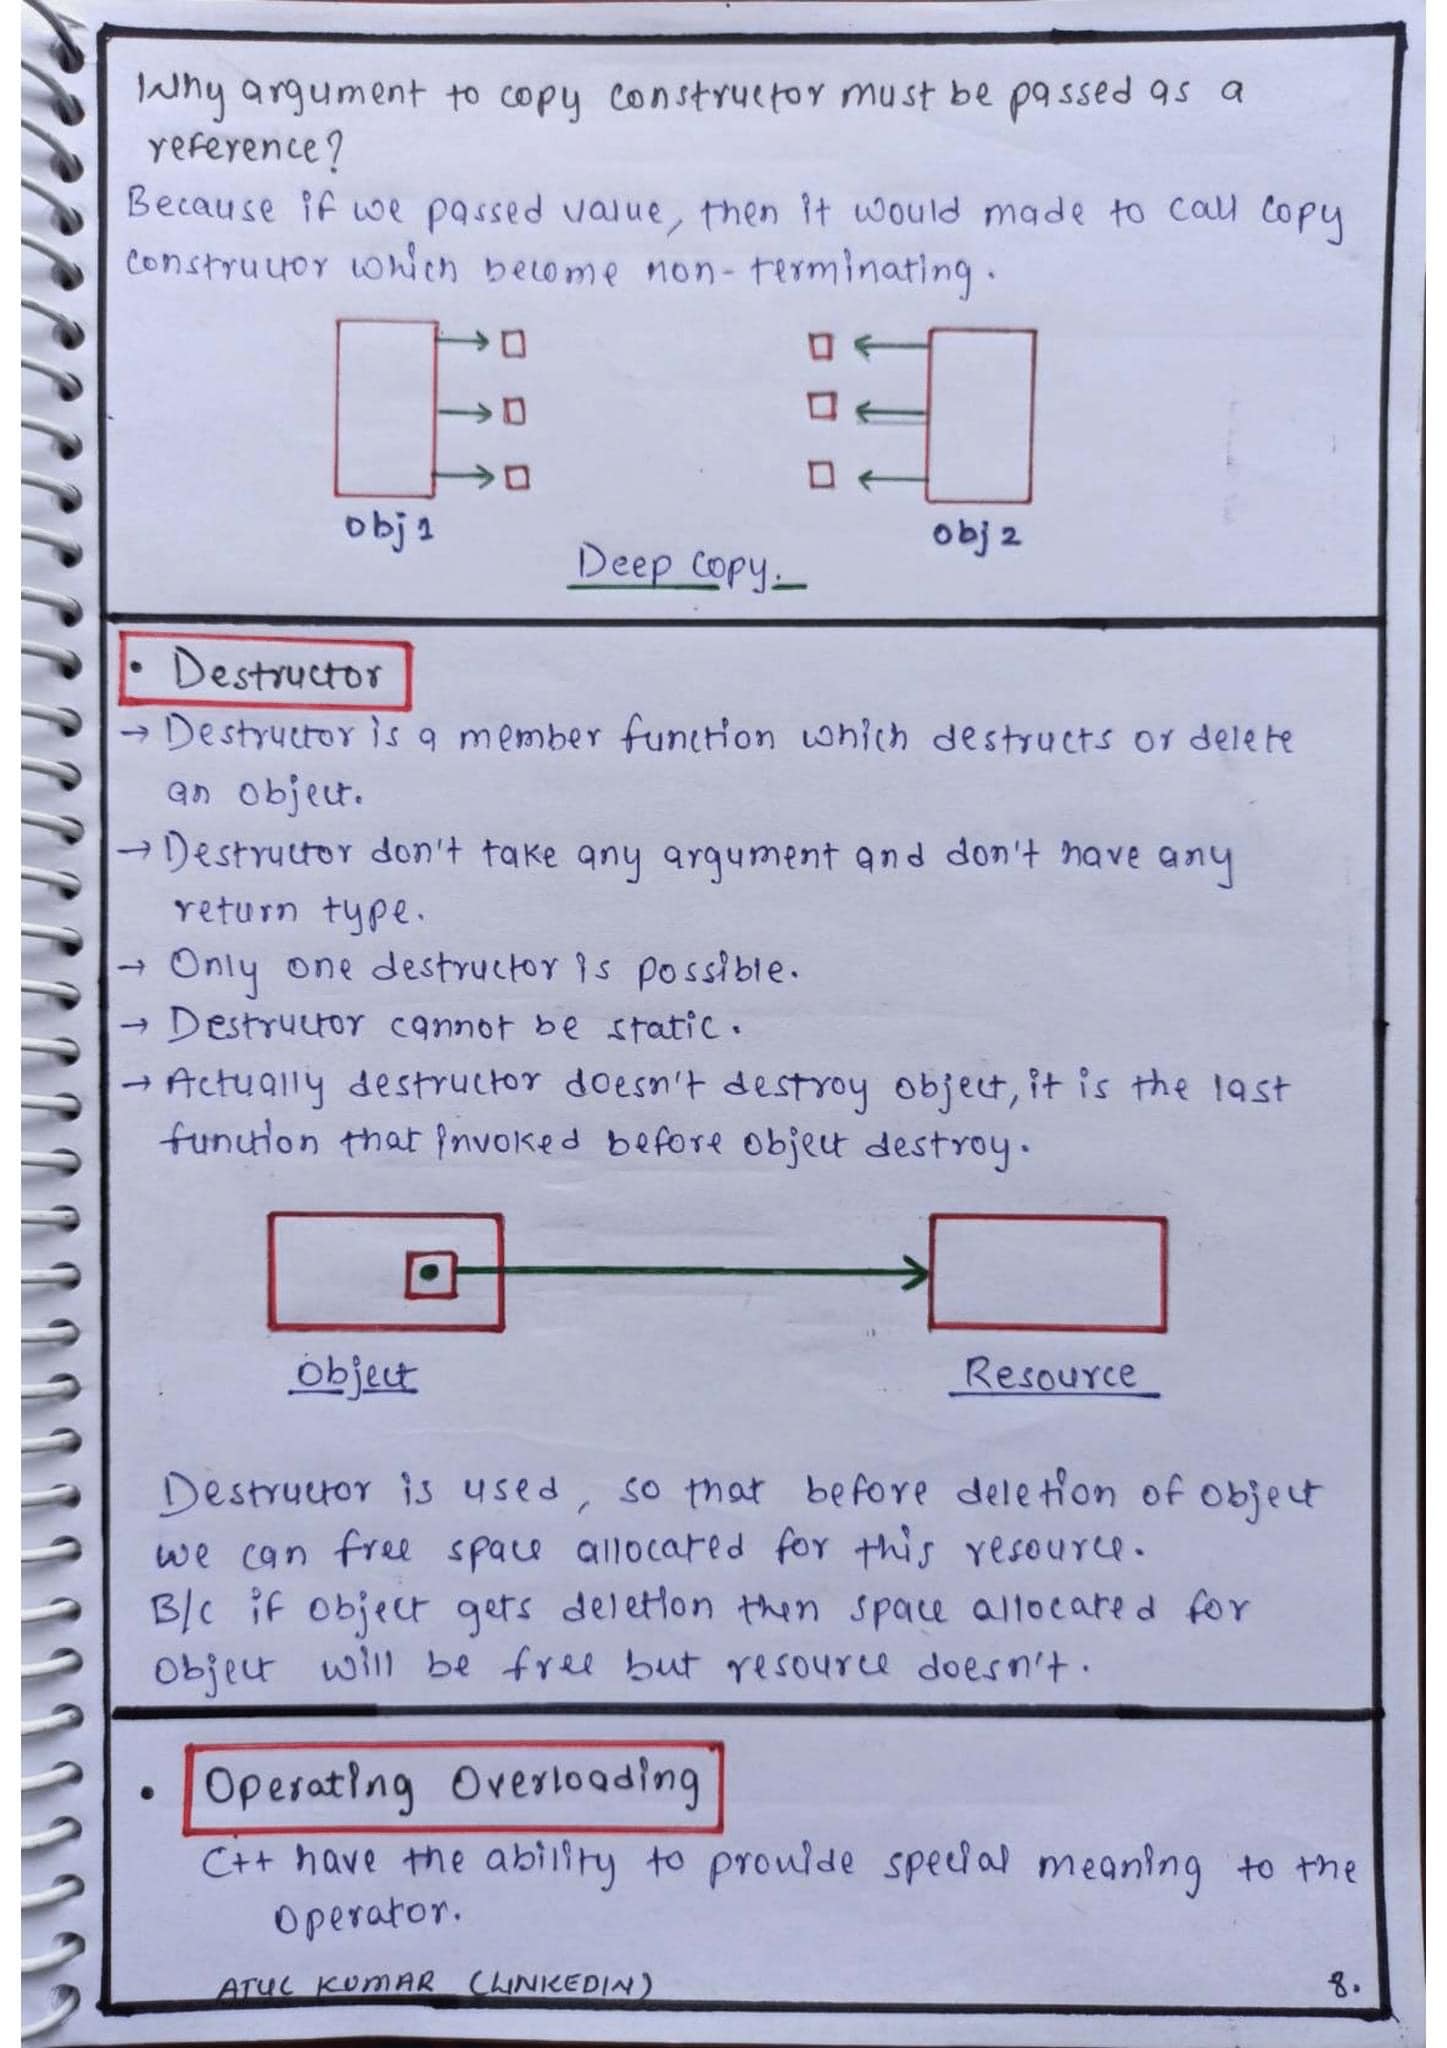 Why argument to copy constructor must be passed as a
reference?
Because if we passed value, then it would made to call copy
constructor which become non-terminating.
Obj 1
Obj 2
Deep copy.
• Destructor
→ Destructor is a member function which destructs or delete
an object.
→ Destructor don't take any argument and don't have any
return type.
→ Only one destructor is possible.
→ Destructor cannot be static.
→ Actually destructor doesn't destroy object, it is the last
function that invoked before object destroy.
Object
Resource
Destructor is used, so that before deletion of object
we can free space allocated for this resource.
B/c if object gets deletion then space allocated for
object will be free but resource doesn't.
• Operating Overloading
C++ have the ability to provide special meaning to the
operator.
ATUL KUMAR (LINKEDIN)
8.